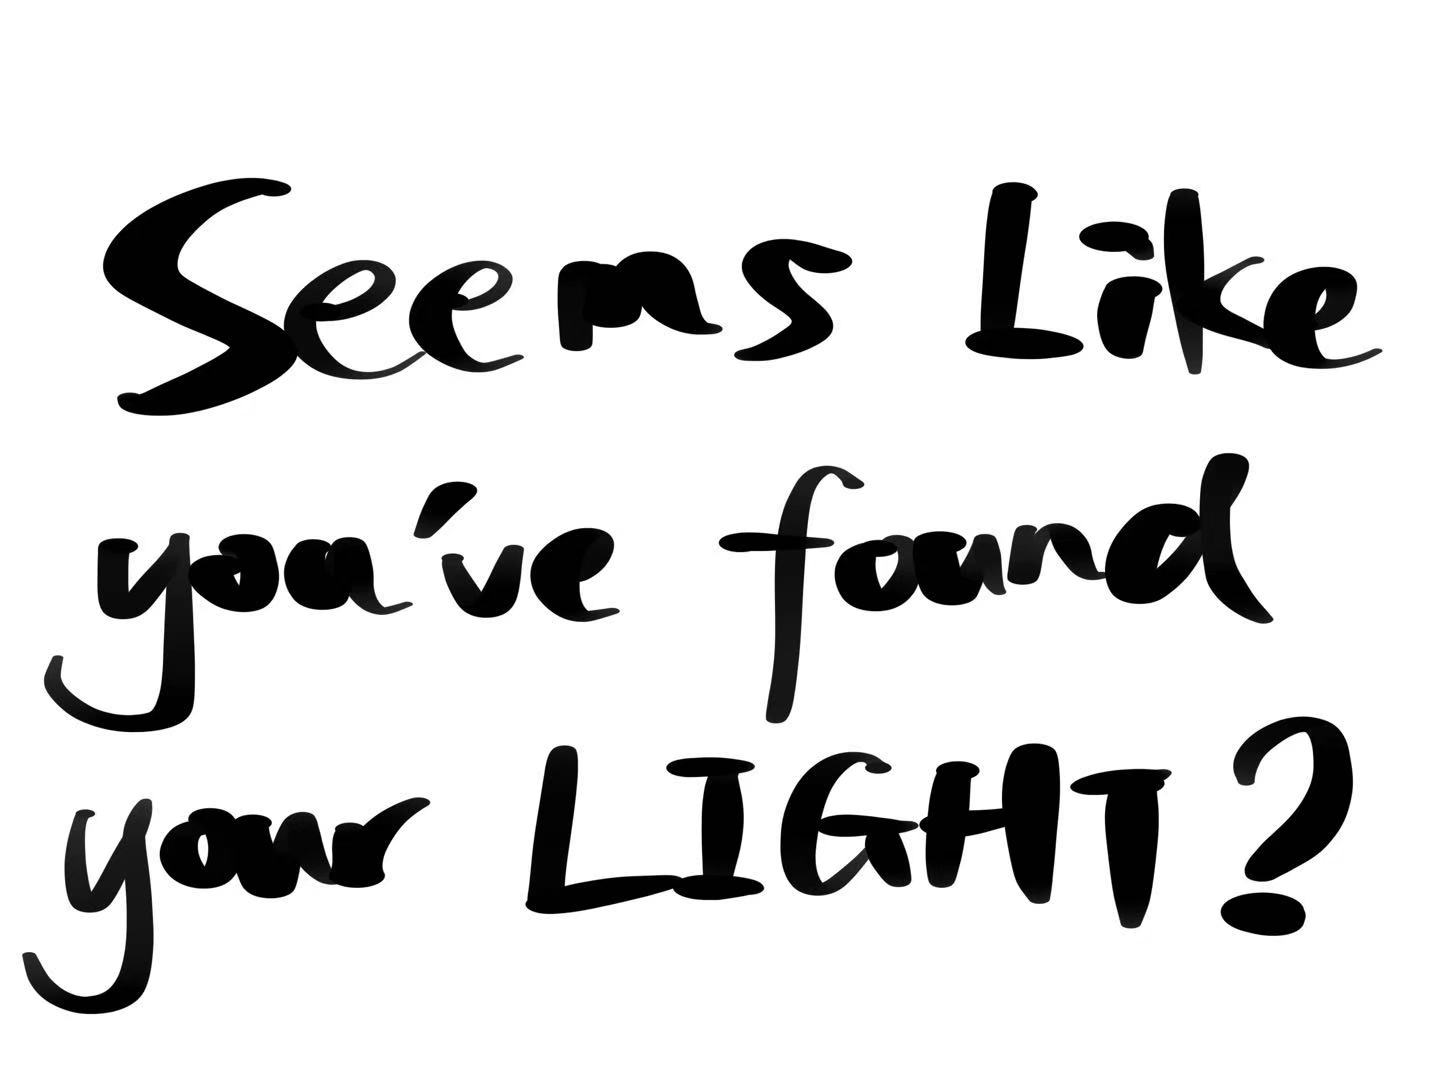 Seems Like
you've found
your LIGHT?